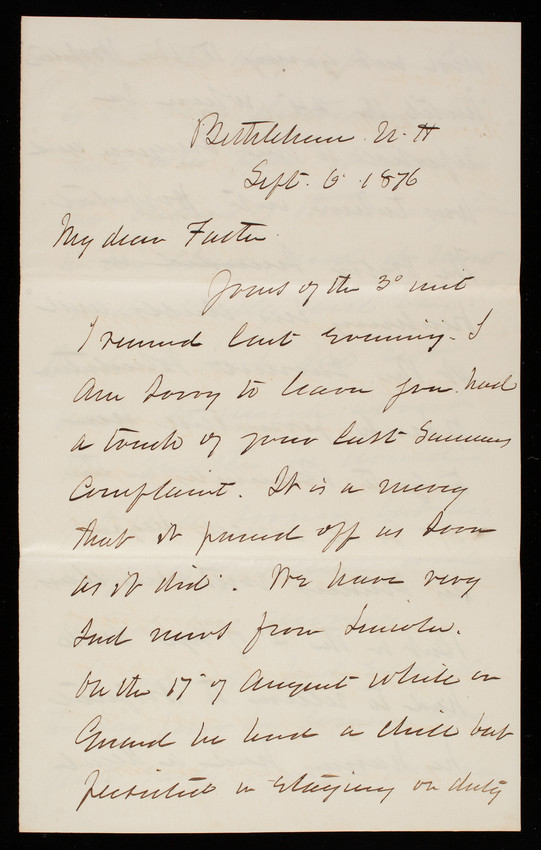 Bethlehem N-H
Sept. 6 1876
My dear Father
Yours of the 3° inst
I received last evening. I
am sorry to learn you had
a touch of your last Summers
Complaint. It is a mercy
that it passed off as soon
as it did. We have very
sad news from Lincoln.
On the 17" of August while on
Guard he had a chill but
persisted in staying on duty